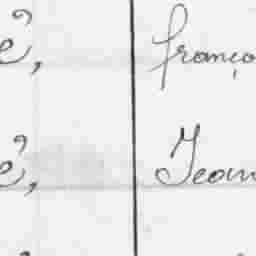 é, franço
é, Jean